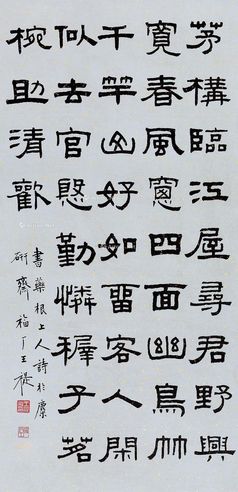 茅構臨江屋尋君野興
寬春風窻四面幽鳥竹
千竿山好如留客人閑
似去官慇勤憐穉子茗
椀助清歡
書藥根上人詩於麋
研齋福厂王禔